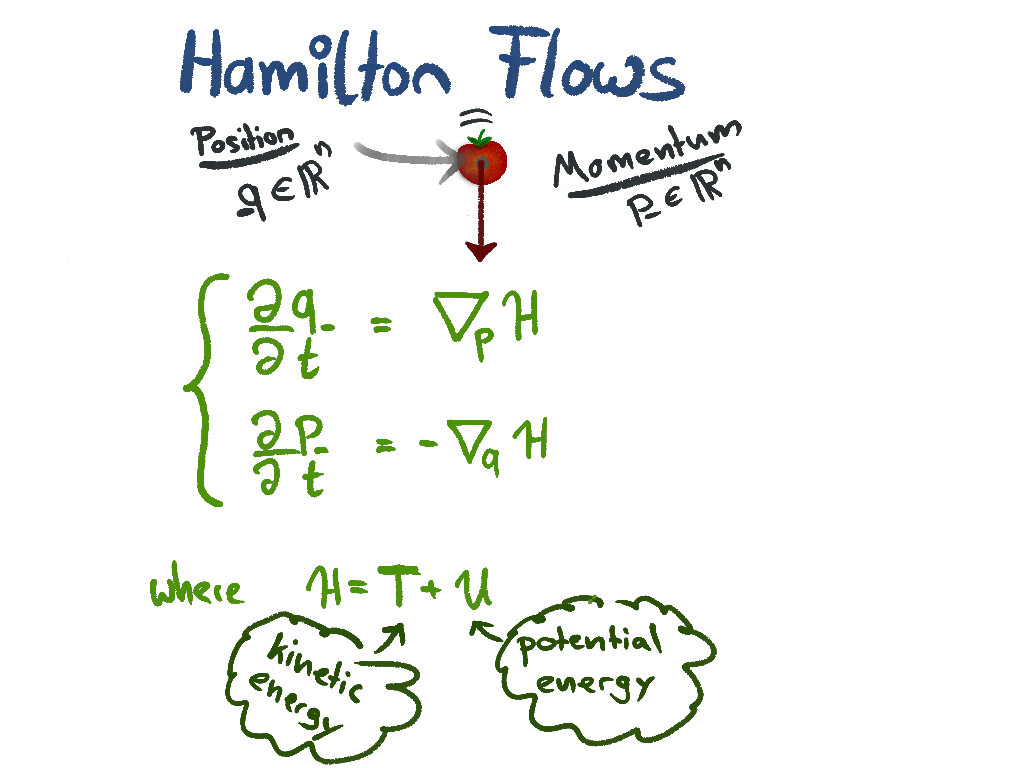 Hamilton Flows
Position
q ∈ ℝⁿ
Momentum
p ∈ ℝⁿ
∂q/∂t = ∇ₚ H
∂p/∂t = - ∇q H
where H = T + U
kinetic
energy
potential
energy